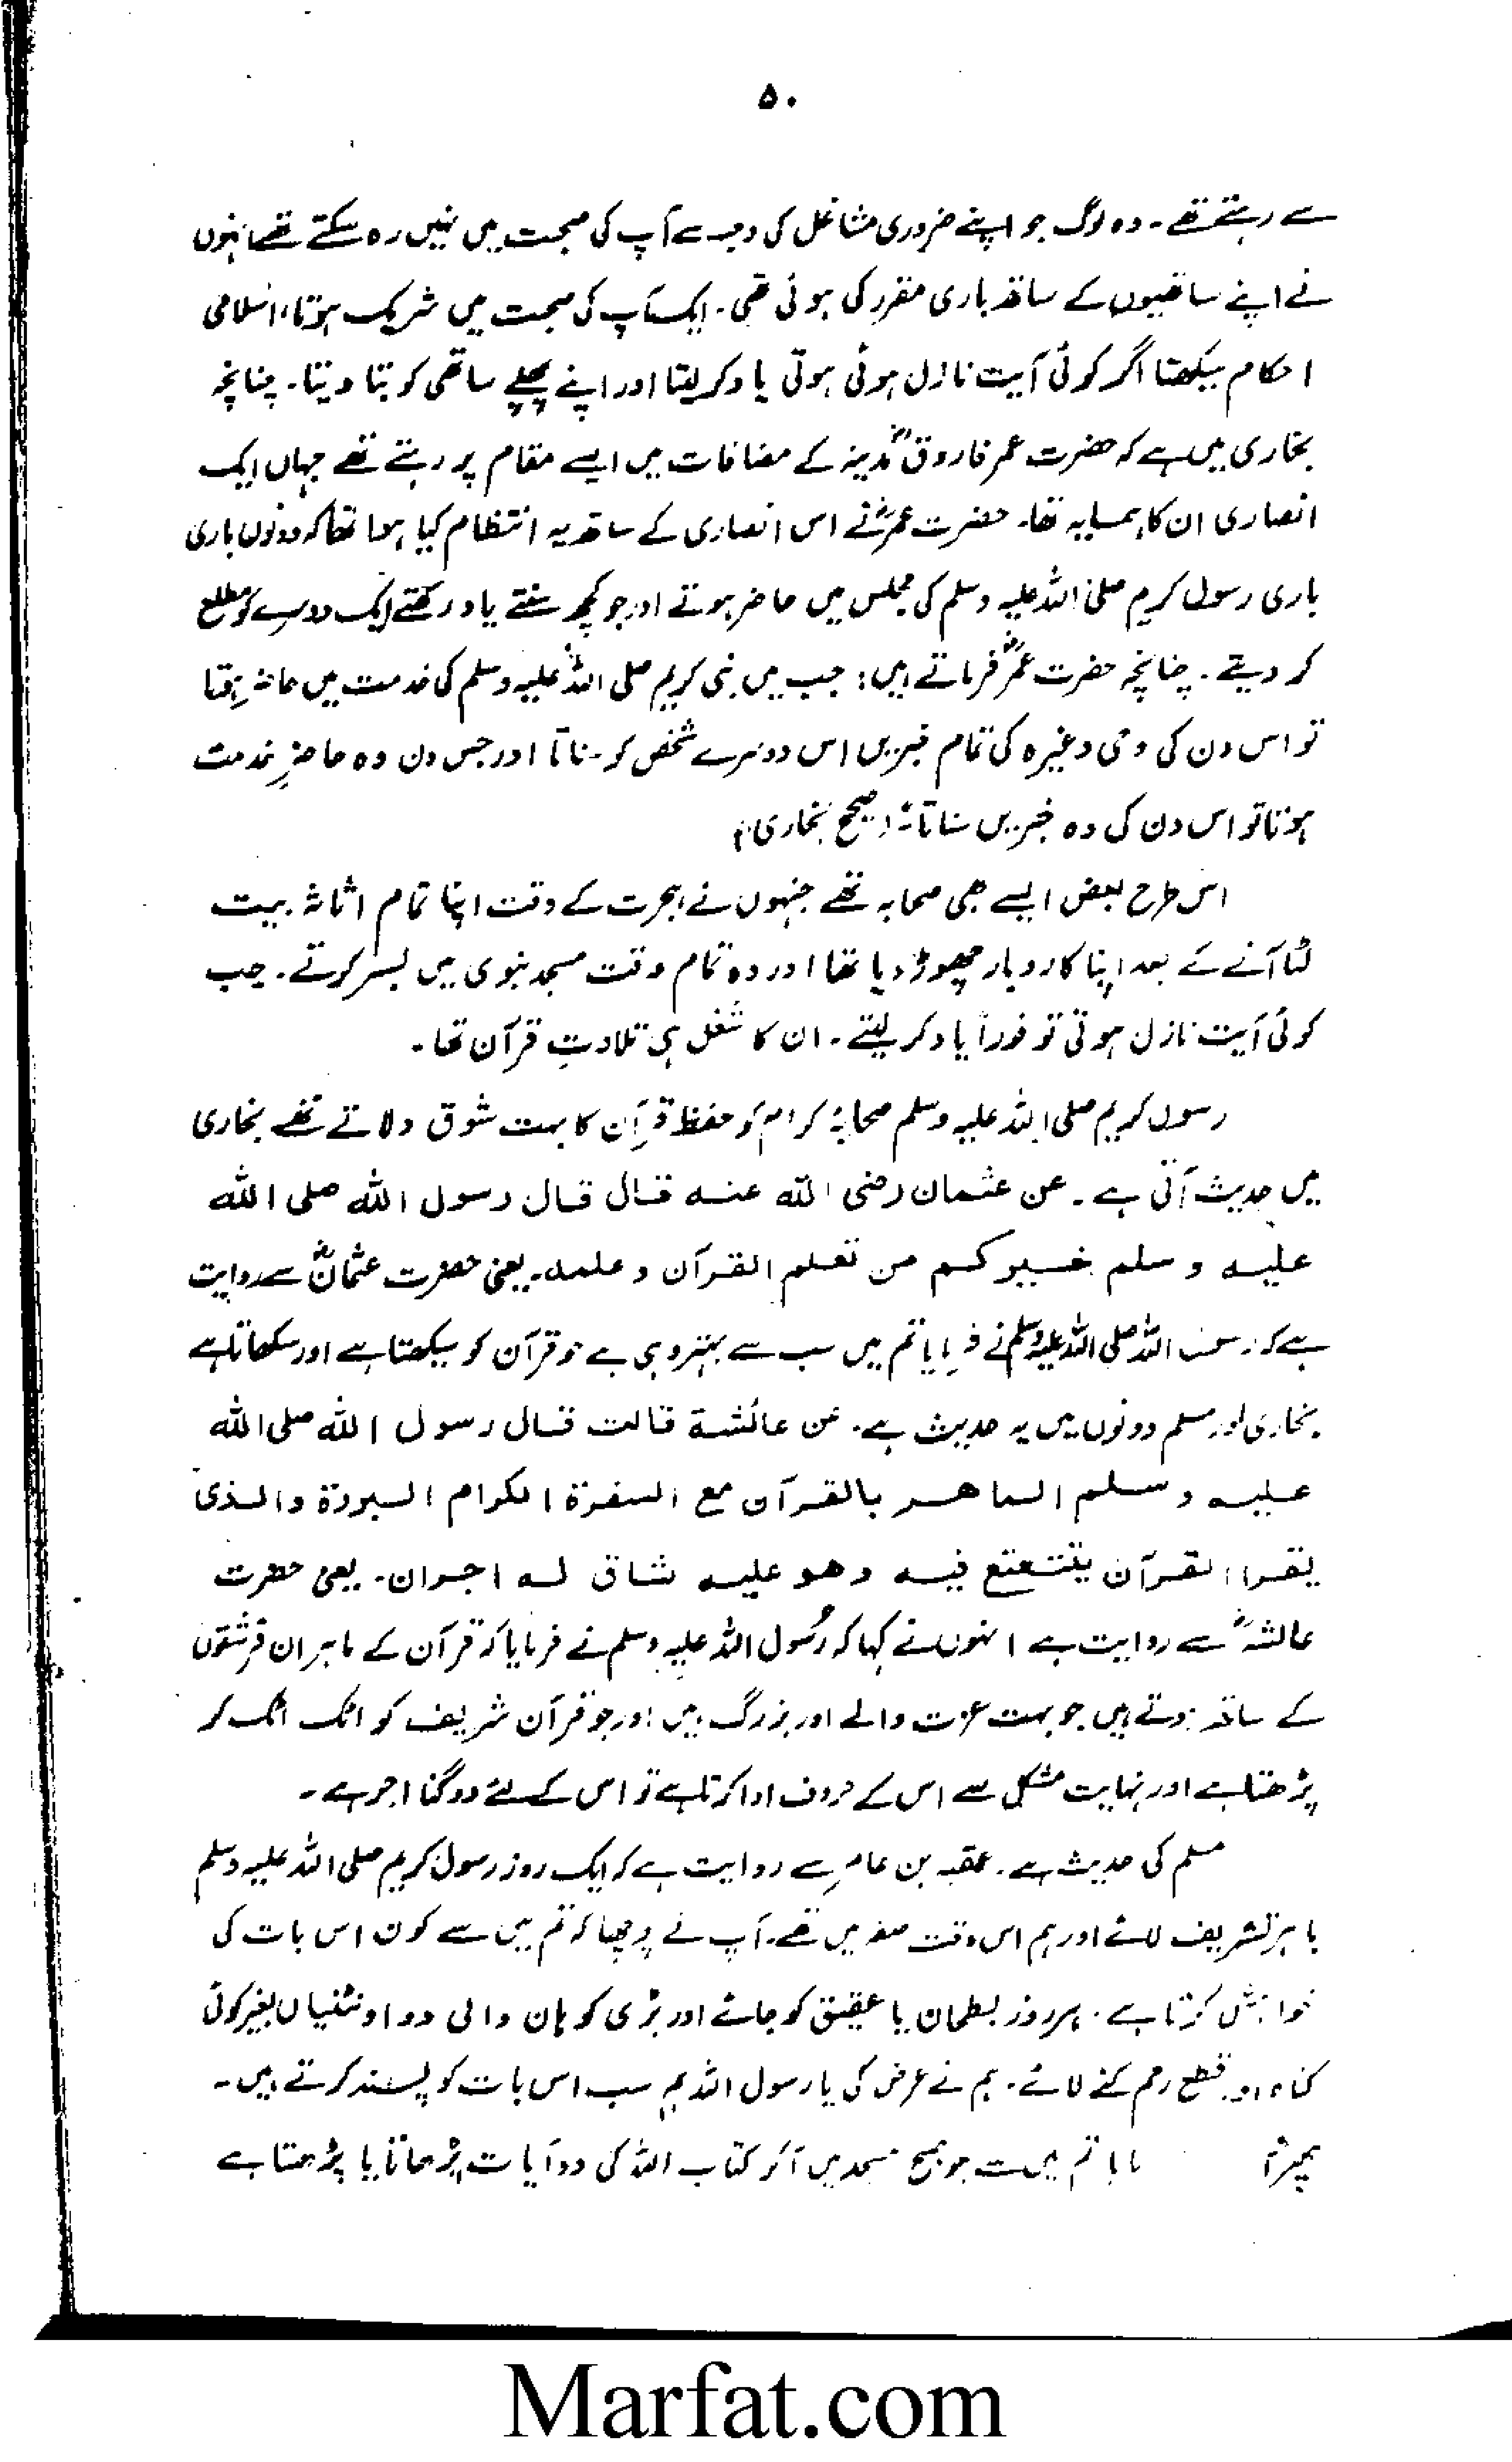 ۵۰
سے رہتے تھے ۔ وہ لوگ جو اپنے ضروری مشاغل کی وجہ سے آپ کی صحبت میں نہیں رہ سکتے تھے انہوں
نے اپنے ساتھیوں کے ساتھ باری مقرر کی ہوئی تھی ۔ ایک آپ کی صحبت میں شریک ہوتا، اسلامی
احکام سیکھتا اگر کوئی آیت نازل ہوئی ہوتی یاد کر لیتا اور اپنے پچھلے ساتھی کو بتا دیتا ۔ چنانچہ
بخاری میں ہے کہ حضرت عمر فاروقؓ مدینہ کے مضافات میں ایسے مقام پر رہتے تھے جہاں ایک
انصاری ان کا ہمسایہ تھا۔ حضرت عمرؓ نے اس انصاری کے ساتھ یہ انتظام کیا ہوا تھا کہ دونوں باری
باری رسول کریم صلی اللہ علیہ وسلم کی مجلس میں حاضر ہوتے اور جو کچھ سنتے یاد رکھتے ایک دوسرے کو مطلع
کر دیتے ۔ چنانچہ حضرت عمرؓ فرماتے ہیں : جب میں نبی کریم صلی اللہ علیہ وسلم کی خدمت میں حاضر ہوتا
تو اس دن کی وحی وغیرہ کی تمام خبریں اس دوسرے شخص کو سناتا اور جس دن وہ حاضرِ خدمت
ہوتا تو اس دن کی وہ خبریں سناتا۔ (صحیح بخاری)
اس طرح بعض ایسے بھی صحابہ تھے جنہوں نے ہجرت کے وقت اپنا تمام اثاثہ بیت
لٹا آنے کے بعد اپنا کاروبار چھوڑ دیا تھا اور وہ تمام وقت مسجد نبوی میں بسر کرتے ۔ جب
کوئی آیت نازل ہوتی تو فوراً یاد کر لیتے ۔ ان کا شغل ہی تلاوتِ قرآن تھا ۔
رسول کریم صلی اللہ علیہ وسلم صحابہ کرام کو حفظ قرآن کا بہت شوق دلاتے تھے بخاری
میں حدیث آتی ہے ۔ عن عثمان رضی اللہ عنہ قال قال رسول اللہ صلی اللہ
علیہ وسلم خیرکم من تعلم القرآن وعلمہ ۔ یعنی حضرت عثمانؓ سے روایت
ہے کہ رسول اللہ صلی اللہ علیہ وسلم نے فرمایا تم میں سب سے بہتر وہی ہے جو قرآن کو سیکھتا ہے اور سکھاتا ہے
بخاری اور مسلم دونوں میں یہ حدیث ہے ۔ عن عائشة قالت قال رسول اللہ صلی اللہ
علیہ وسلم الماھر بالقرآن مع السفرة الکرام البررة والذی
یقرا القرآن یتتعتع فیہ وھو علیہ شاق لہ اجران ۔ یعنی حضرت
عائشہؓ سے روایت ہے انہوں نے کہا کہ رسول اللہ علیہ وسلم نے فرمایا کہ قرآن کے ماہر ان فرشتوں
کے ساتھ ہوتے ہیں جو بہت عزت والے اور بزرگ ہیں اور جو قرآن شریف کو اٹک اٹک کر
پڑھتا ہے اور نہایت مشکل سے اس کے حروف ادا کرتا ہے تو اس کے لئے دوگنا اجر ہے ۔
مسلم کی حدیث ہے ۔ عقبہ بن عامر سے روایت ہے کہ ایک روز رسول کریم صلی اللہ علیہ وسلم
باہر تشریف لائے اور ہم اس وقت صفہ میں تھے ۔ آپ نے پوچھا کہ تم میں سے کون اس بات کی
خواہش کرتا ہے ۔ ہر روز بطحان یا عقیق کو جائے اور بڑی کوہان والی دو اونٹنیاں بغیر کوئی
گناہ اور قطع رحم کئے لائے ۔ ہم نے عرض کی یا رسول اللہ ہم سب اس بات کو پسند کرتے ہیں ۔
پھر تم میں سے جو صبح مسجد میں آ کر کتاب اللہ کی دو آیات پڑھاتا یا پڑھتا ہے
Marfat.com